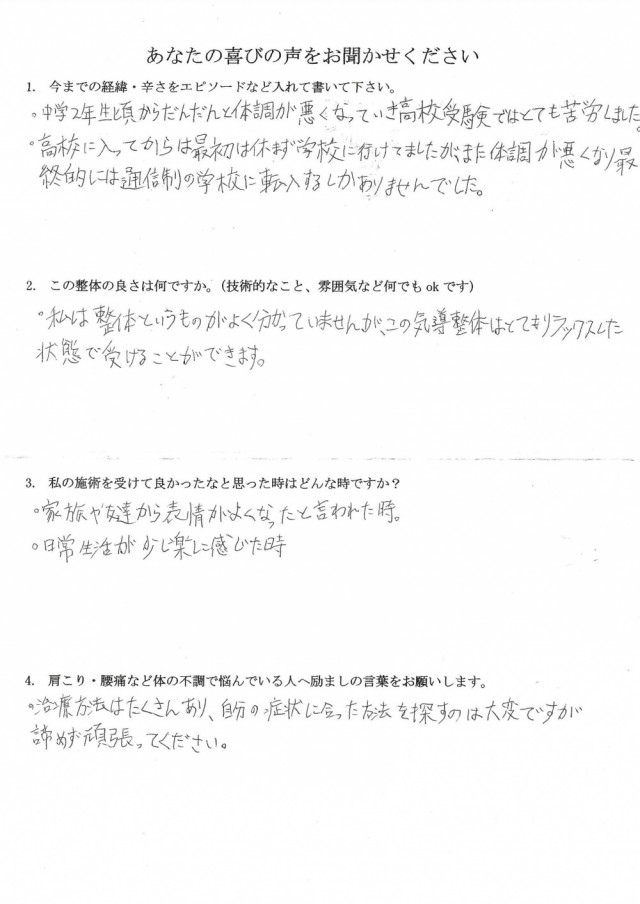 あなたの喜びの声をお聞かせください
1. 今までの経緯・辛さをエピソードなど入れて書いて下さい。
。中学2年生頃からだんだんと体調が悪くなっていき高校受験ではとても苦労しました。
。高校に入ってからは最初は休まず学校に行けてましたが、また体調が悪くなり最
終的には通信制の学校に転入するしかありませんでした。
2. この整体の良さは何ですか。(技術的なこと、雰囲気など何でも ok です)
。私は整体というものがよく分かっていませんが、この気導整体はとてもリラックスした
状態で受けることができます。
3. 私の施術を受けて良かったなと思った時はどんな時ですか？
。家族や友達から表情がよくなったと言われた時。
。日常生活が少し楽に感じた時
4. 肩こり・腰痛など体の不調で悩んでいる人へ励ましの言葉をお願いします。
。治療方法はたくさんあり、自分の症状に合った方法を探すのは大変ですが
諦めず頑張ってください。